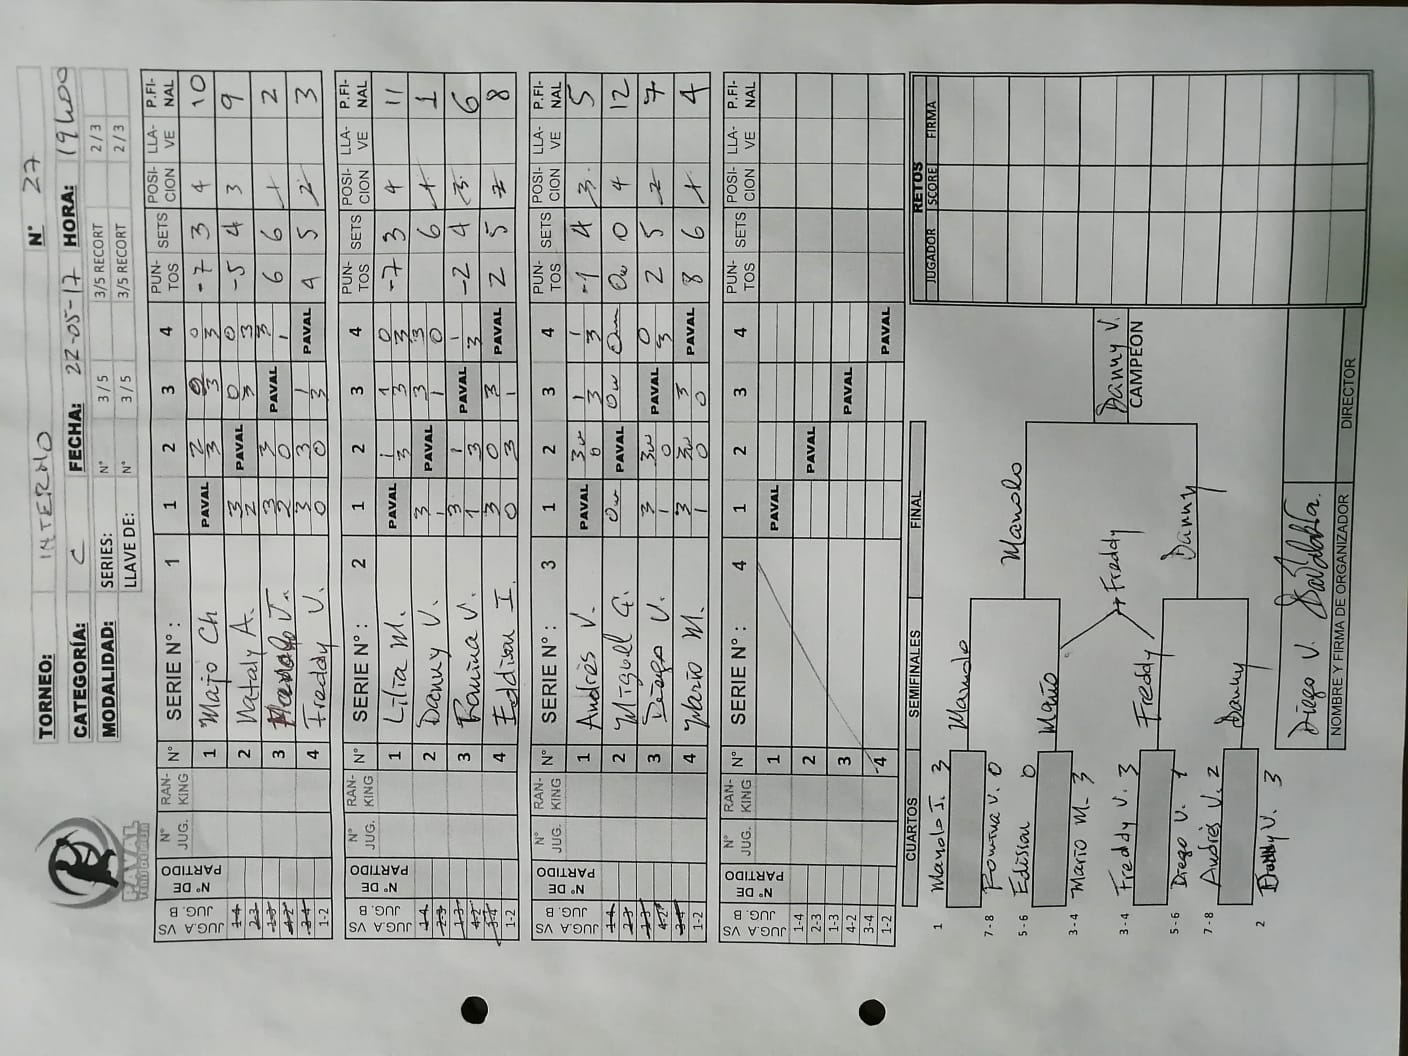 TORNEO: INTERNO N° 27
CATEGORÍA: C FECHA: 22-05-17 HORA: 19h00
MODALIDAD: SERIES: N° 3/5 3/5 RECORT 2/3
LLAVE DE: N° 3/5 3/5 RECORT 2/3
PAVAL
JUG.A VS JUG. B N° DE PARTIDO N° JUG. RAN-KING N° SERIE N° : 1 1 2 3 4 PUN-TOS SETS POSI-CION LLA-VE P.FI-NAL
1-4 1 Majo Ch PAVAL 2 3 0 3 0 3 -7 3 4 10
2-3 2 Nataly A. 3 2 PAVAL 0 3 0 3 -5 4 3 9
1-3 3 Manolo J. 3 2 3 0 PAVAL 3 1 6 6 1 2
4-2 4 Freddy V. 3 0 3 0 1 3 PAVAL 4 5 2 3
3-4
1-2
JUG.A VS JUG. B N° DE PARTIDO N° JUG. RAN-KING N° SERIE N° : 2 1 2 3 4 PUN-TOS SETS POSI-CION LLA-VE P.FI-NAL
1-4 1 Lilia M. PAVAL 1 3 1 3 0 3 -7 3 4 11
2-3 2 Danny V. 3 1 PAVAL 3 1 3 0 6 1 1
1-3 3 Romina V. 3 1 1 3 PAVAL 1 3 -2 4 3 6
4-2 4 Edison I. 3 0 0 3 3 1 PAVAL 2 5 2 8
3-4
1-2
JUG.A VS JUG. B N° DE PARTIDO N° JUG. RAN-KING N° SERIE N° : 3 1 2 3 4 PUN-TOS SETS POSI-CION LLA-VE P.FI-NAL
1-4 1 Andrés V. PAVAL 3w 0 1 3 1 3 -1 4 3 5
2-3 2 Miguel G. 0w PAVAL 0w 0w 0w 0 4 12
1-3 3 Diego V. 3 1 3w 0 PAVAL 0 3 2 5 2 7
4-2 4 Mario M. 3 1 3w 0 3 0 PAVAL 8 6 1 4
3-4
1-2
JUG.A VS JUG. B N° DE PARTIDO N° JUG. RAN-KING N° SERIE N° : 4 1 2 3 4 PUN-TOS SETS POSI-CION LLA-VE P.FI-NAL
1-4 1 PAVAL
2-3 2 PAVAL
1-3 3 PAVAL
4-2 4 PAVAL
3-4
1-2
CUARTOS SEMIFINALES FINAL
1 Manolo J. 3
Manolo
7 - 8 Romina V. 0
Manolo
5 - 6 Edison 0
Mario
3 - 4 Mario M. 3
Freddy
Danny V.
CAMPEON
3 - 4 Freddy V. 3
Freddy
5 - 6 Diego V. 1
Danny
7 - 8 Andrés V. 2
Danny
2 Danny V. 3
RETOS
JUGADOR SCORE FIRMA
Diego V.
NOMBRE Y FIRMA DE ORGANIZADOR DIRECTOR